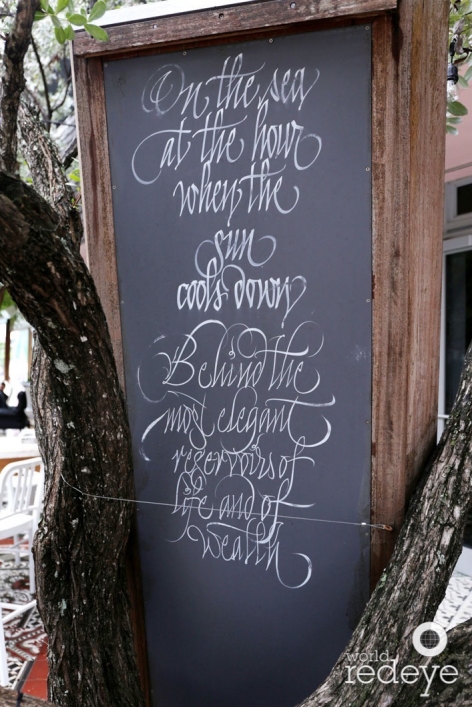 On the sea
at the hour
when the
sun
cools down
Behind the
most elegant
reservoirs of
life and of
wealth
world
redeye